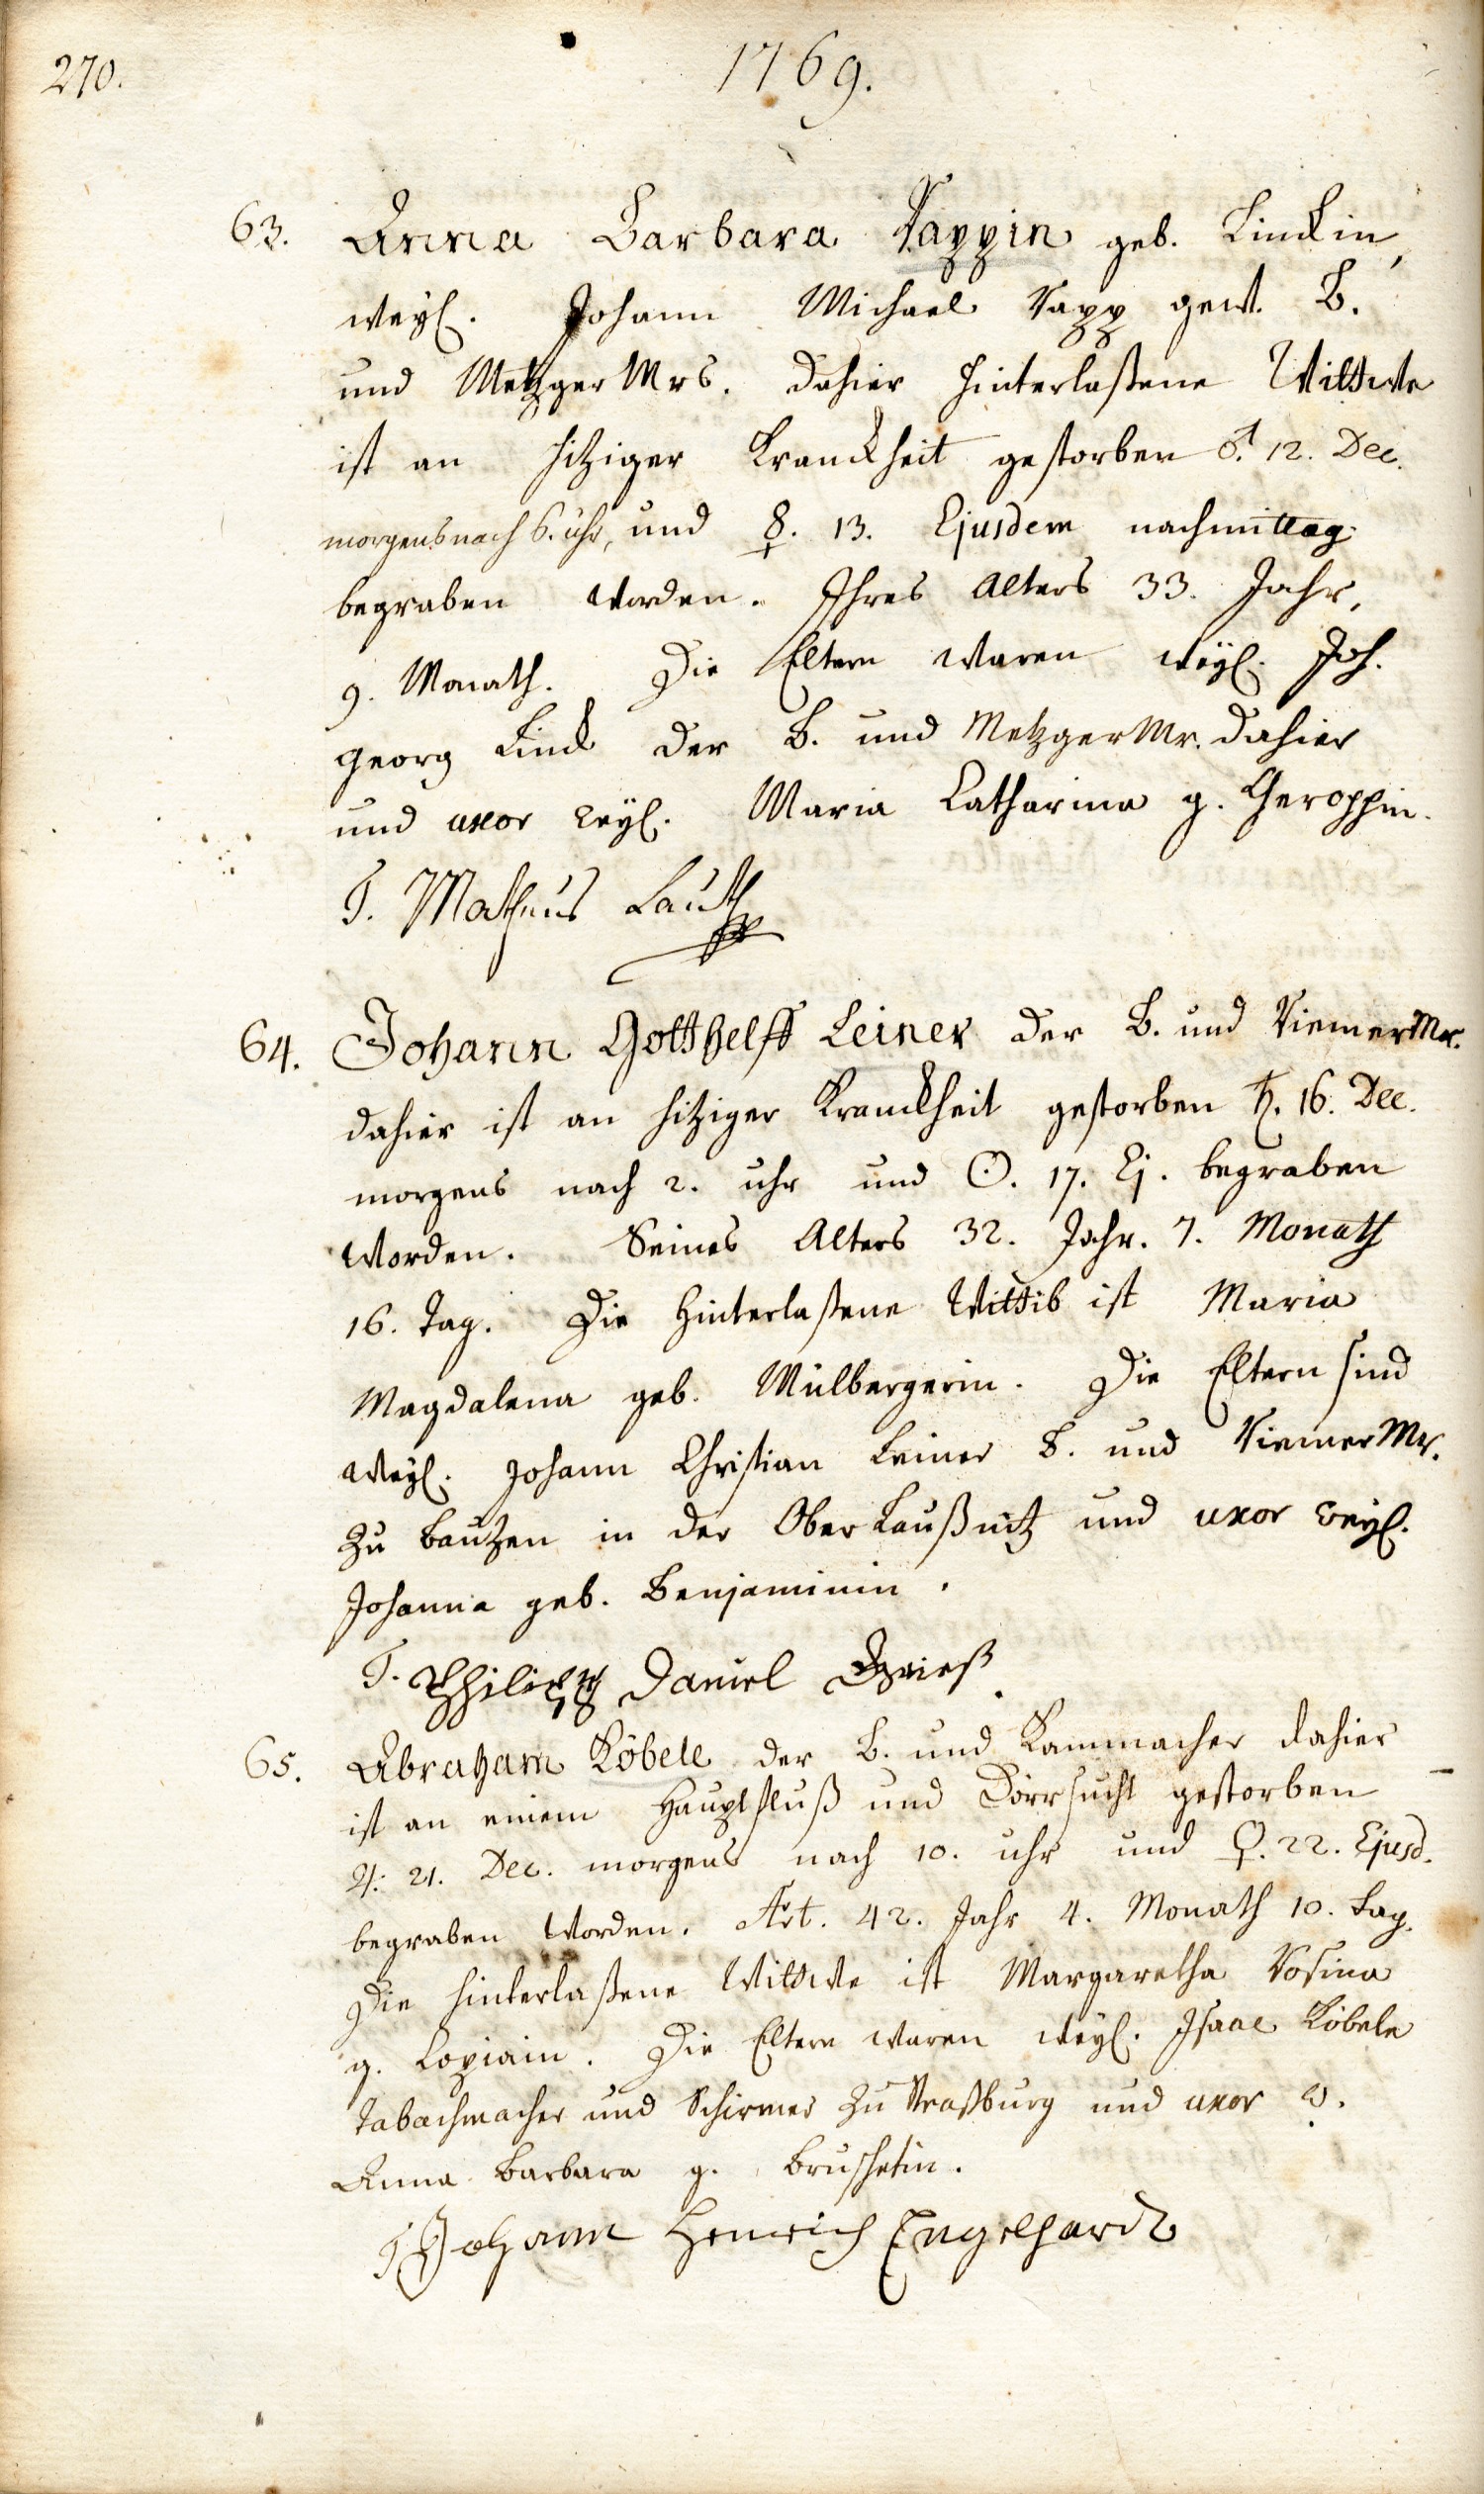 270.
1769.
63. Anna Barbara Rappin geb. Linckin,
weyl. Johann Michael Rapp gew. B.
und Metzger Mrs. dahier hinterlaßene Wittwe
ist an hitziger Kranckheit gestorben ♂. 12. Dec.
morgens nach 6. uhr, und ☿. 13. Ejusdem nachmittag
begraben worden. Ihres Alters 33. Jahr,
9. Monath. Die Eltern waren weyl. Joh.
Georg Linck der B. und Metzger Mr. dahier
und uxor weyl. Maria Catharina g. Geroppin.
T. Matheus Lauth
64. Johann Gotthelff Leiner der B. und Riemer Mr.
dahier ist an hitziger Kranckheit gestorben ♄. 16. Dec.
morgens nach 2. uhr und ☉. 17. Ej. begraben
worden. Seines Alters 32. Jahr. 7. Monath
16. Tag. Die hinterlaßene Wittib ist Maria
Magdalena geb. Mülbergerin. Die Eltern sind
weyl. Johann Christian Leiner B. und Riemer Mr.
zu Bautzen in der Ober Laußnitz und uxor weyl.
Johanna geb. Benjaminin.
T. Philipp Daniel Grieß.
65. Abraham Köbele der B. und Kammacher dahier
ist an einem Hauptfluß und Dörrsucht gestorben
♃. 21. Dec. morgens nach 10. uhr und ♀. 22. Ejusd.
begraben worden. Aet. 42. Jahr 4. Monath 10. Tag.
Die hinterlaßene Wittwe ist Margaretha Rosina
g. Lopiain. Die Eltern waren weyl. Isaac Köbele
Tabachmacher und Schirmer zu Straßburg und uxor w.
Anna Barbara g. Bruschetin.
T Johann Henrich Engelhardt